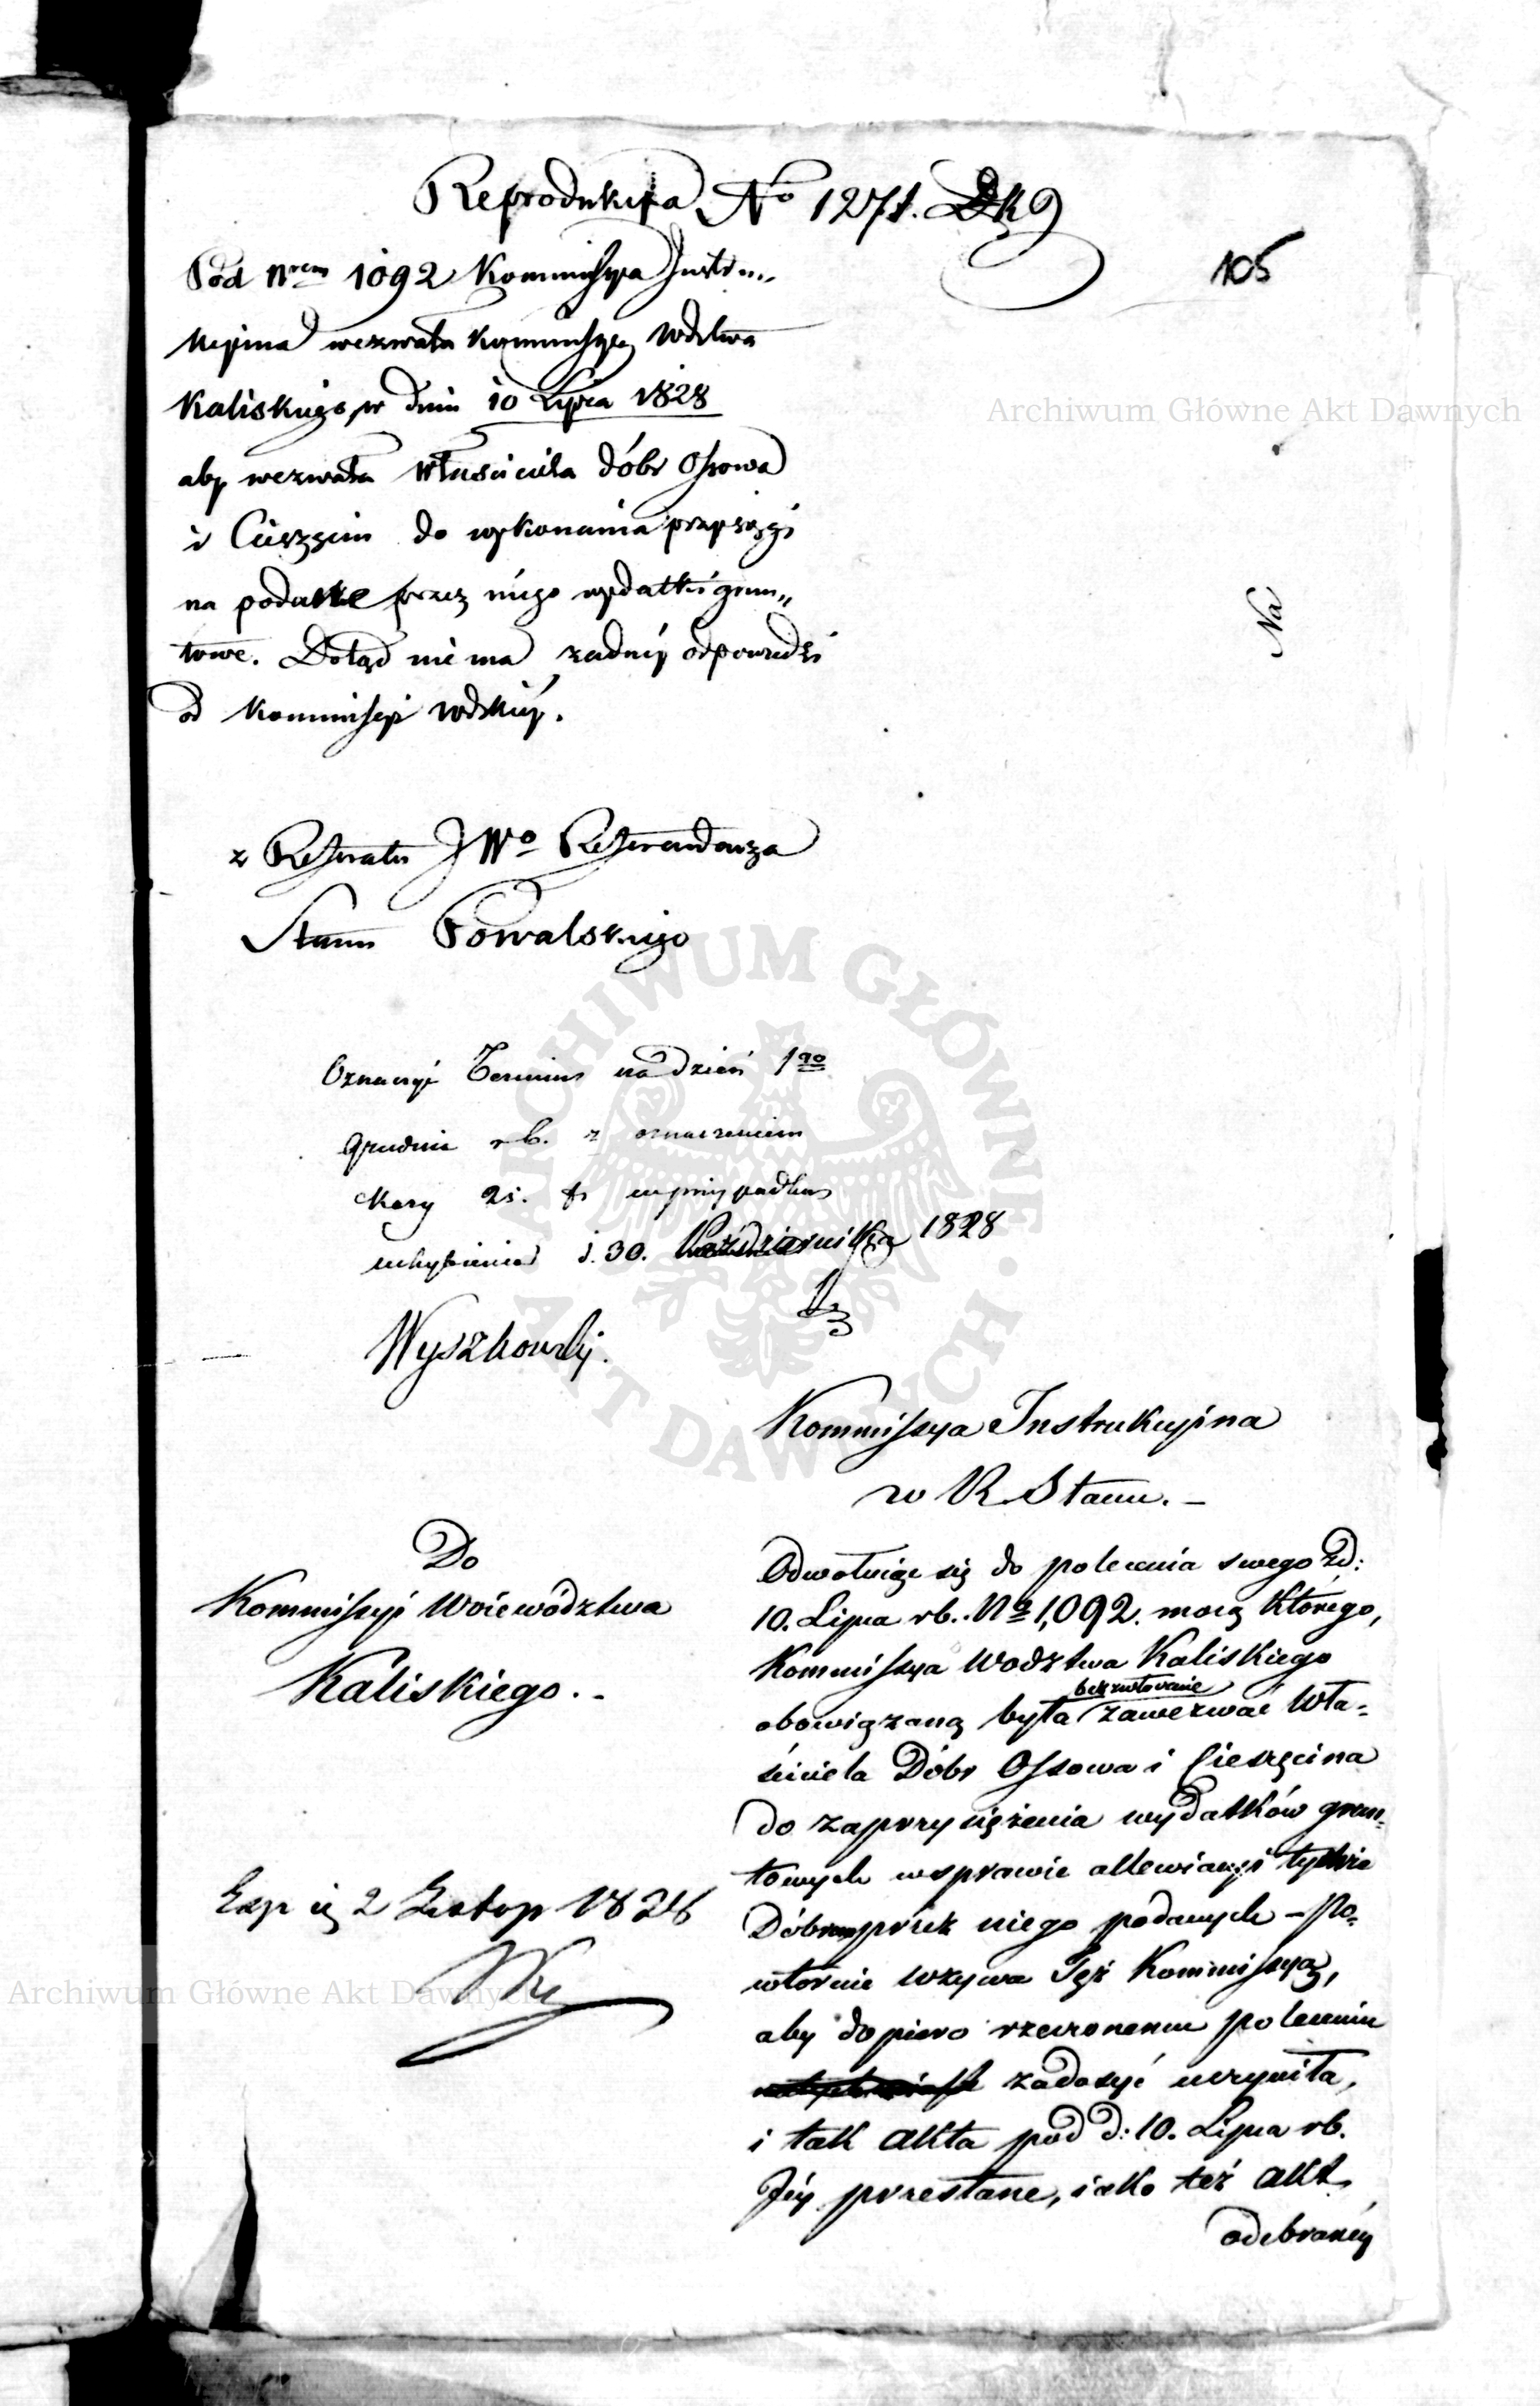 Reprodukcya No 1271. Dk9
105
Pod Nrem 1092 Kommissya Instru„
kcyina wezwała Kommissyę Wdztwa
Kaliskiego, w dniu 10 Lipca 1828
aby wezwała Właściciela dóbr Ossowa
i Cieszęcin do wykonania przysięgi
na podatki przez niego wydatki grun„
towe. Dotąd nie ma żadnéj odpowiedzi
od Kommissyi Wdzkiéj.
Na
z Referatu JWo Referendarza
Stanu Powalskiego
Oznaczyć Termin na dzień 1go
Grudnia rb. z oznaczeniem
kary 25. fr w przypadku
uchybienia d. 30. Października 1828
Wyszkowski.
Kommissya Instrukcyina
w R Stanu. –
Do
Kommissyi Woiewództwa
Kaliskiego. –
Exp ią 2 Listop 1828
Odwołuiąc się do polecenia swego zd:
10. Lipca rb. No 1,092. mocą którego,
Kommissya Wodztwa Kaliskiego
obowiązaną była bezzwłocznie zawezwać Wła=
ściciela Dóbr Ossowa i Cieszęcina
do zaprzysiężenia wydatków grun=
towych w sprawie allewiacyi tychże
Dóbr przez niego podanych – Po=
wtórnie wzywa Tęż Kommissyą,
aby dopiero rzeczonemu poleceniu
natychmiast zadosyć uczyniła,
i tak akta pod d: 10. Lipca rb.
Jéy przesłane, iako też akt
odebranéy
Archiwum Główne Akt Dawnych
Archiwum Główne Akt Dawnych
ARCHIWUM GŁÓWNE AKT DAWNYCH